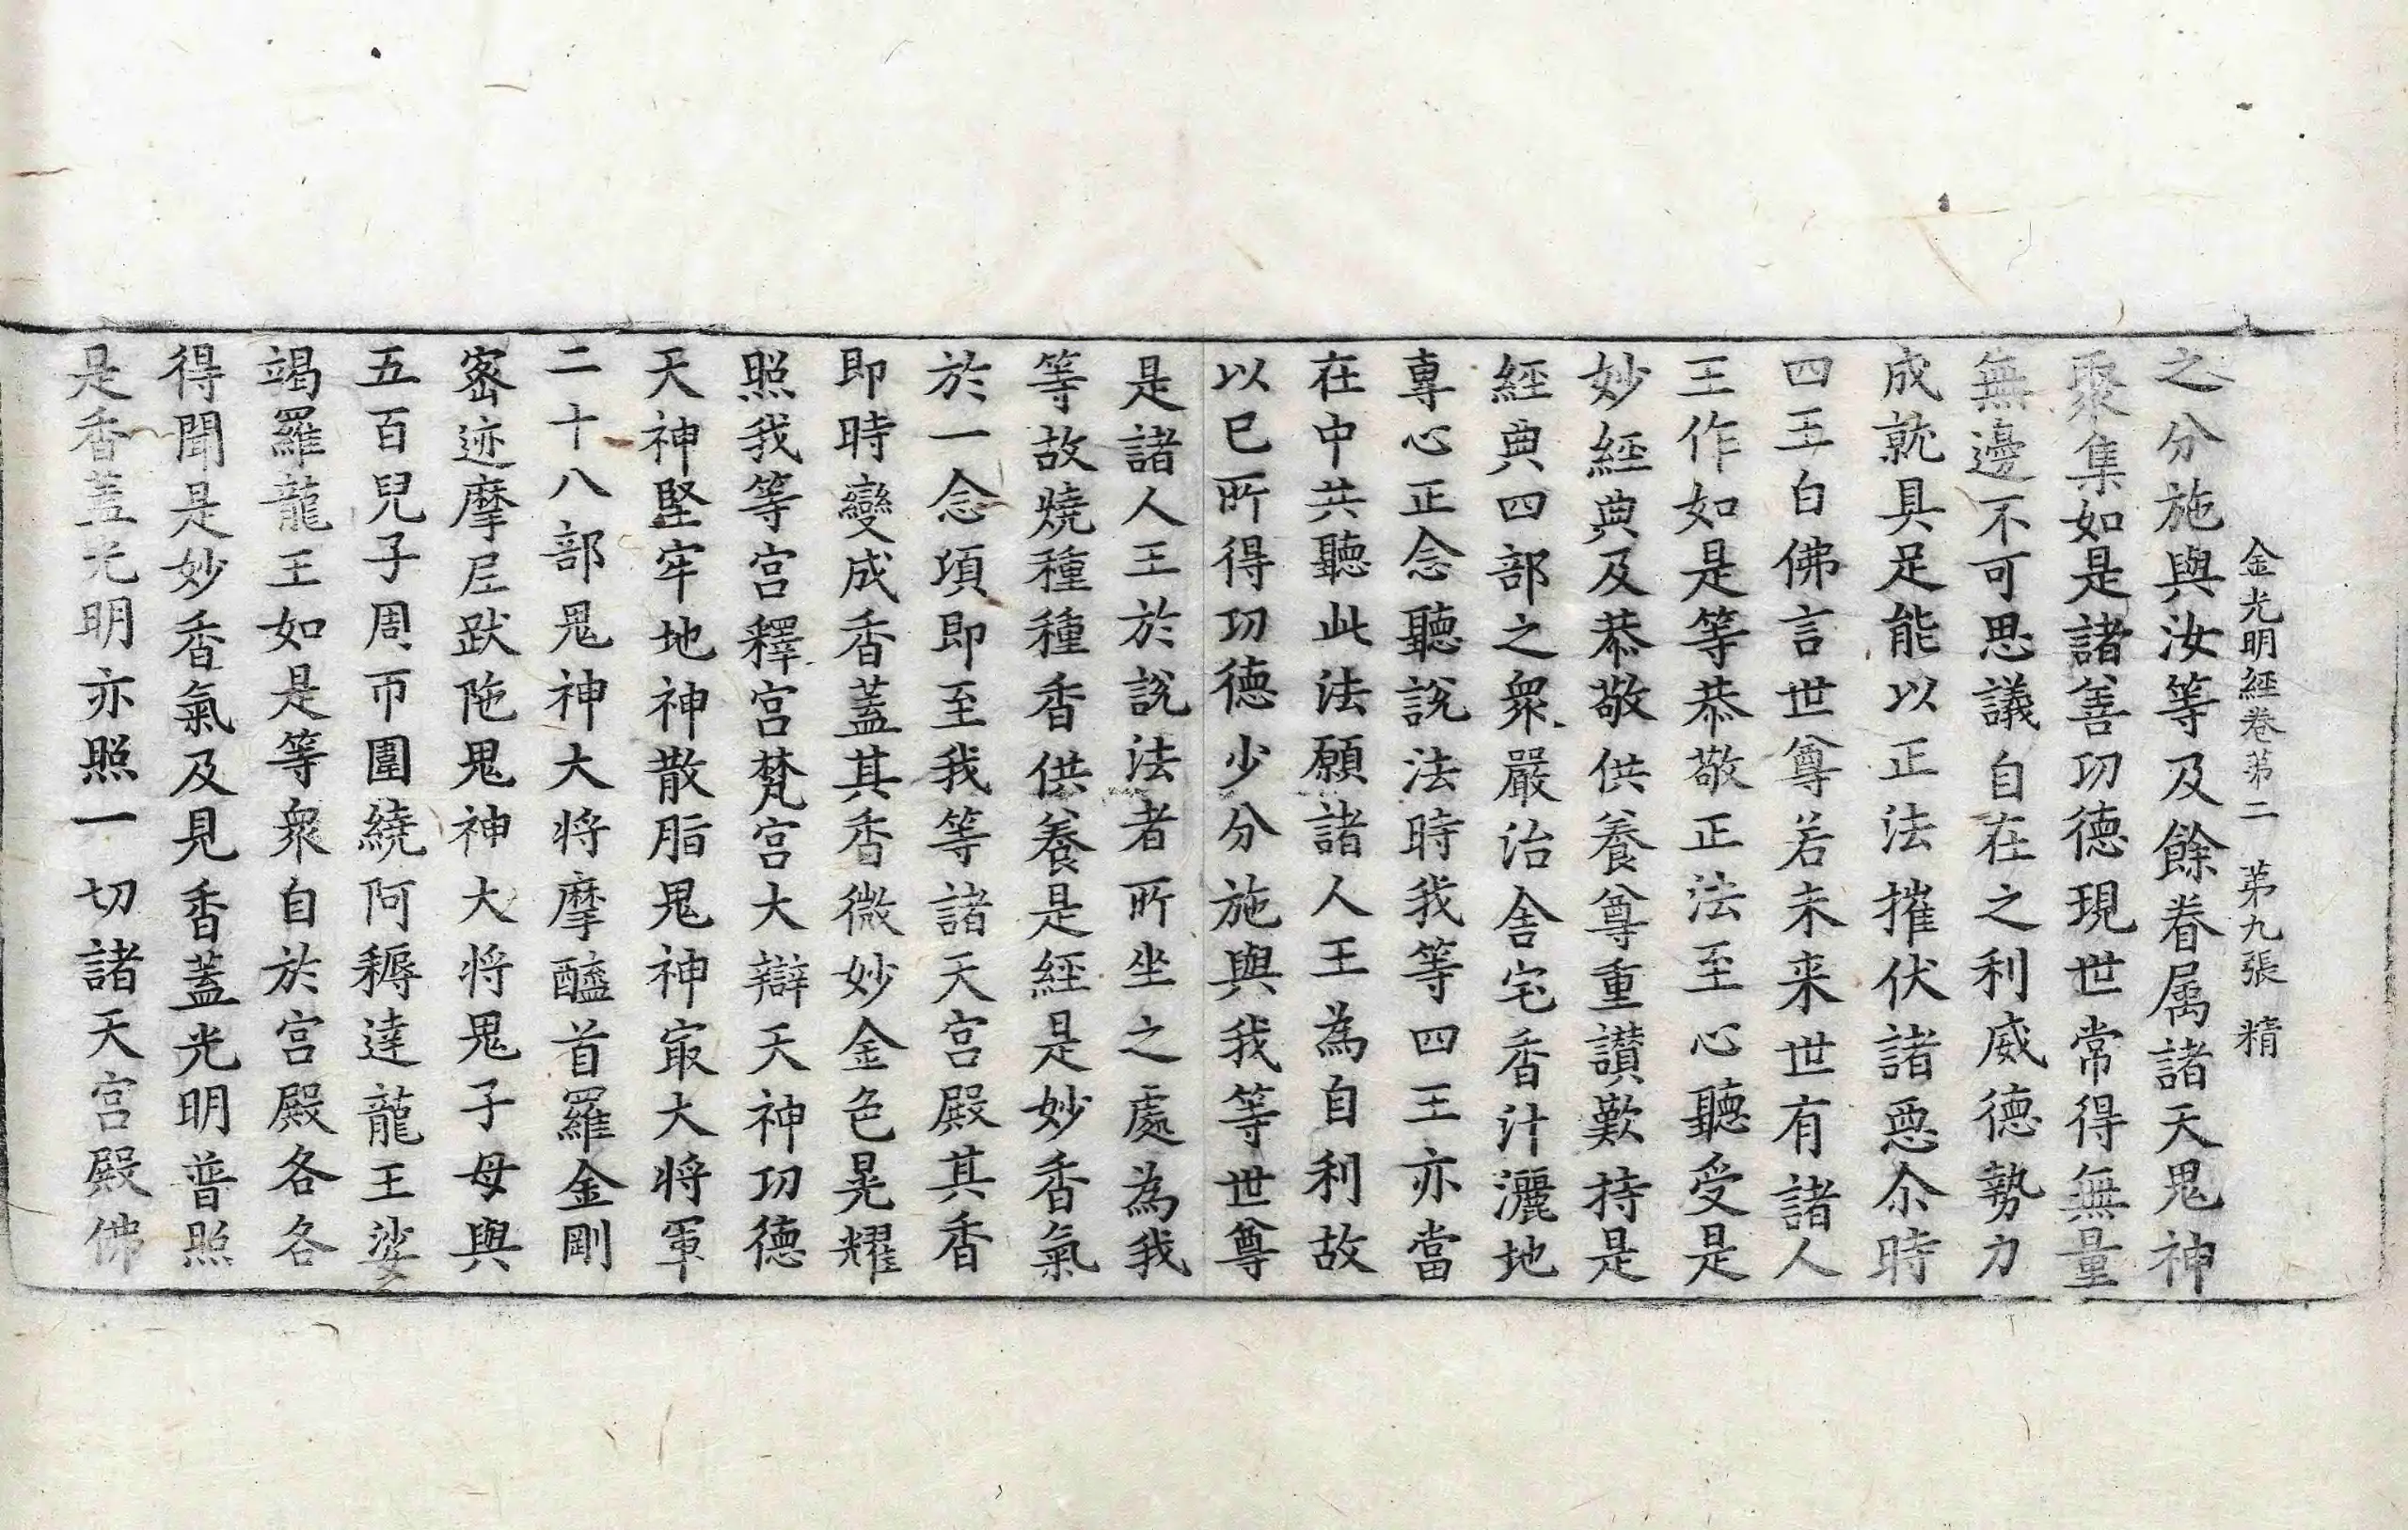 金光明經卷苐二　苐九張　精
之分施與汝等及餘眷属諸天鬼神
聚集如是諸善功德現世常得無量
無邊不可思議自在之利威德勢力
成就具足能以正法摧伏諸惡尒時
四王白佛言世尊若未来世有諸人
王作如是等恭敬正法至心聽受是
妙經典及恭敬供養尊重讃歎持是
經典四部之衆嚴治舍宅香汁灑地
專心正念聽說法時我等四王亦當
在中共聽此法願諸人王為自利故
以已所得功德少分施與我等世尊
是諸人王於說法者所坐之處為我
等故燒種種香供養是經是妙香氣
於一念頃即至我等諸天宫殿其香
即時變成香蓋其香微妙金色晃耀
照我等宫釋宫梵宫大辯天神功德
天神堅牢地神散脂鬼神㝡大将軍
二十八部鬼神大将摩醯首羅金剛
密迹摩尼跋陁鬼神大将鬼子母與
五百兒子周帀圍繞阿耨達龍王娑
竭羅龍王如是等衆自於宫殿各各
得聞是妙香氣及見香蓋光明普照
是香蓋光明亦照一切諸天宫殿佛